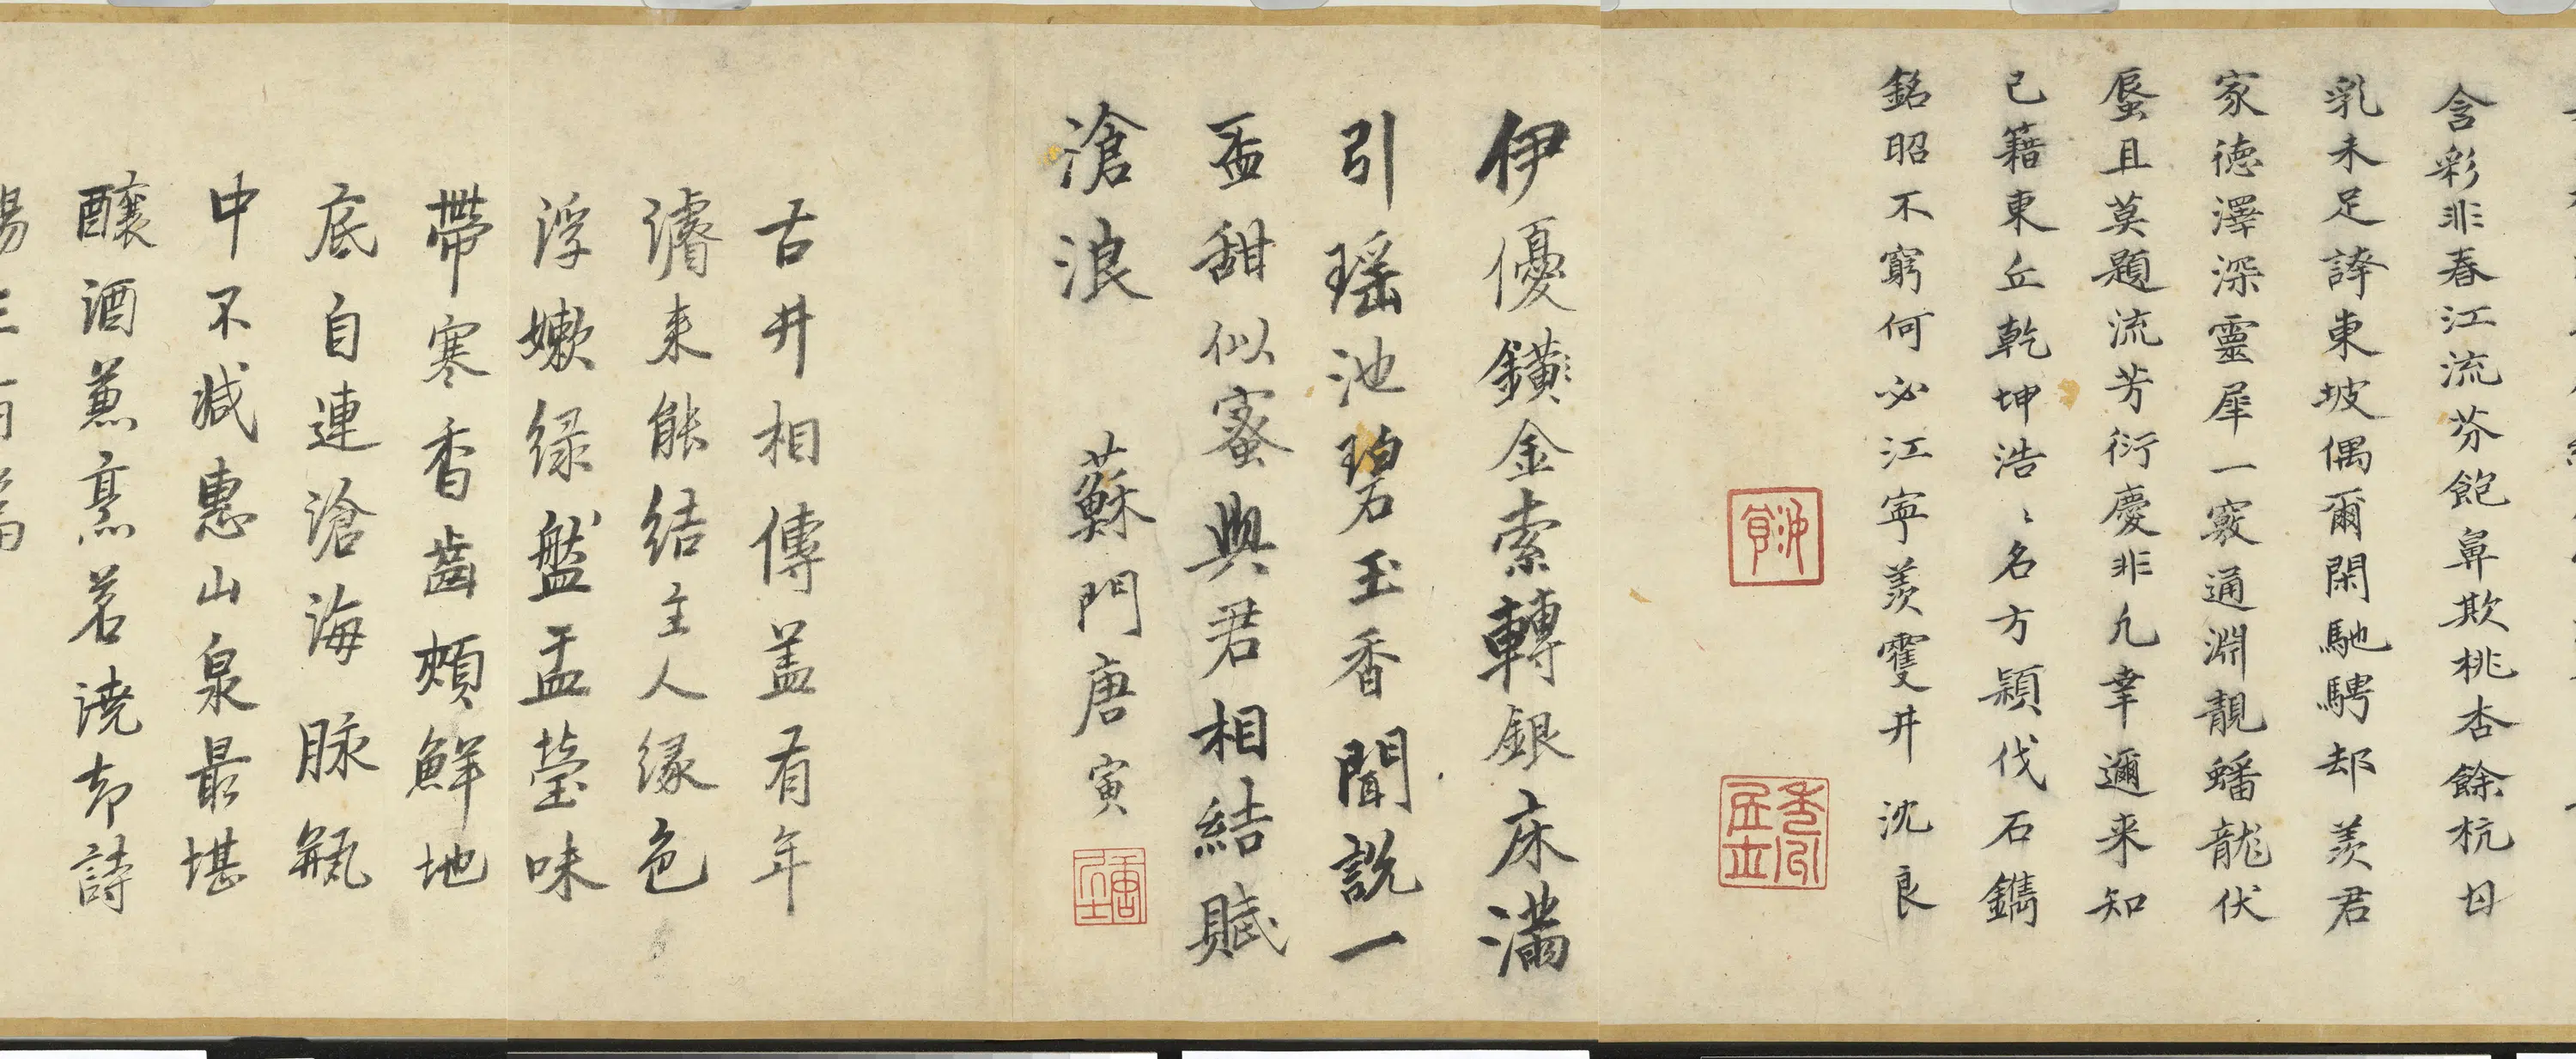 含彩非春江流芬飽鼻欺桃杏餘杭母
乳未足誇東坡偶爾閑馳騁却羨君
家德澤深靈犀一竅通淵靚蟠龍伏
蜃且莫題流芳衍慶非凡幸邇来知
已籍東丘乾坤浩〻名方穎伐石鐫
銘昭不窮何必江寧羨雙井 沈良
伊優鐄金索轉銀床滿
引瑶池碧玉香聞説一
盃甜似蜜與君相結賦
滄浪 蘇門唐寅
古井相傳盖有年
濬来能結主人緣色
浮嫰緑盤盂瑩味
帶寒香齒頰鮮地
底自連滄海脉瓶
中不減惠山泉最堪
釀酒蒸烹茗澆却詩